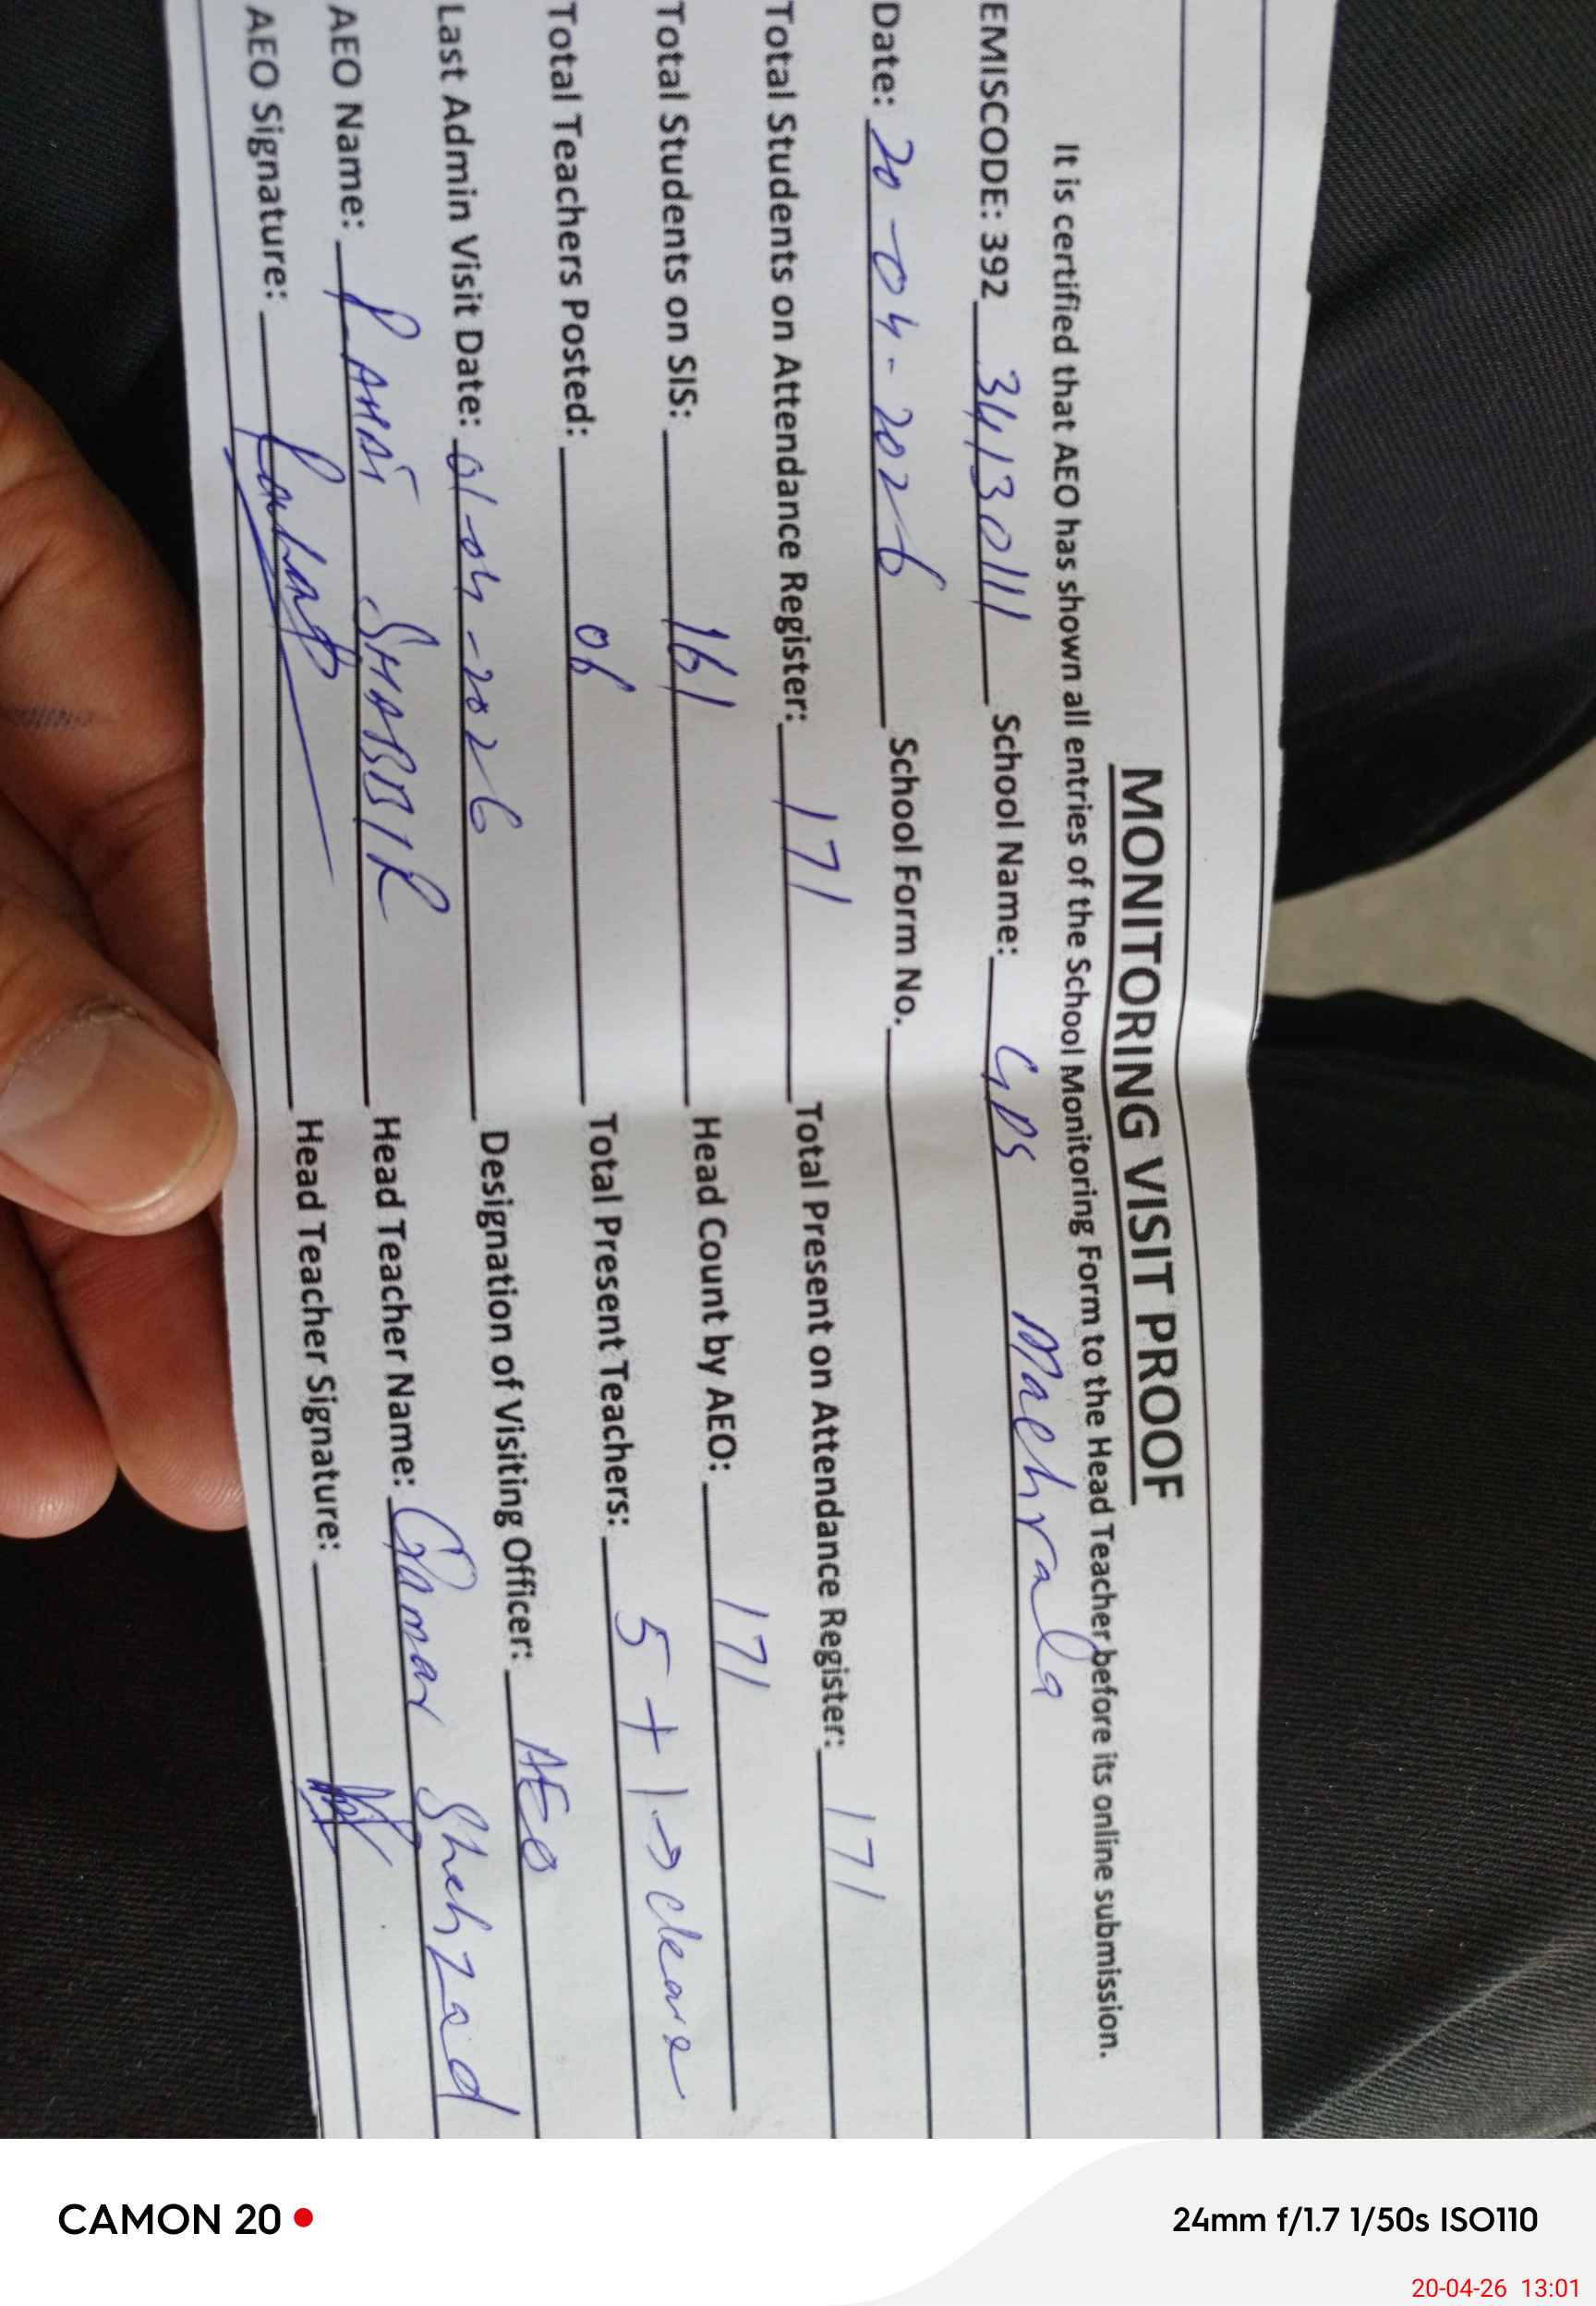 MONITORING VISIT PROOF
It is certified that AEO has shown all entries of the School Monitoring Form to the Head Teacher before its online submission.
EMISCODE: 392 34130111 School Name: GPS Machrala
Date: 20-04-2026 School Form No.
Total Students on Attendance Register: 171 Total Present on Attendance Register: 171
Total Students on SIS: 161 Head Count by AEO: 171
Total Teachers Posted: 06 Total Present Teachers: 5 + 1 →
Last Admin Visit Date: 01-04-2026 Designation of Visiting Officer: AEO
AEO Name: SHABBIR Head Teacher Name: Qamar Shehzad
AEO Signature: Head Teacher Signature:
CAMON 20
24mm f/1.7 1/50s ISO110
20-04-26 13:01